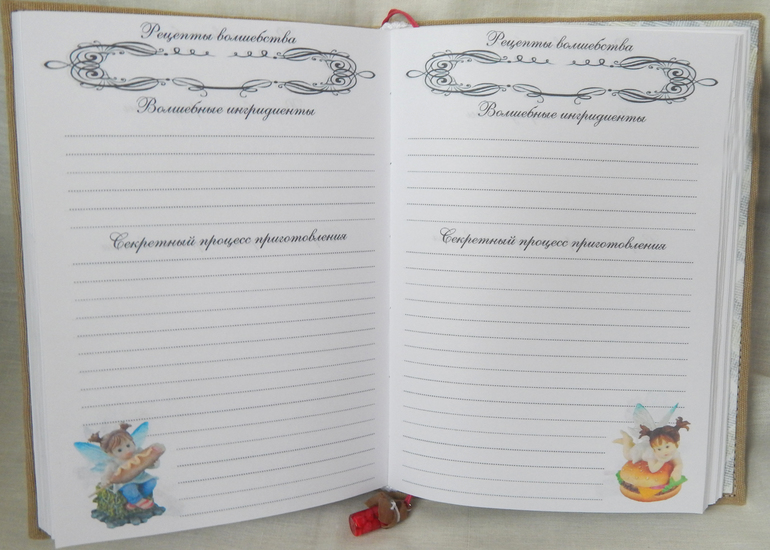 Рецепты волшебства
Волшебные ингридиенты
Секретный процесс приготовления
Рецепты волшебства
Волшебные ингридиенты
Секретный процесс приготовления